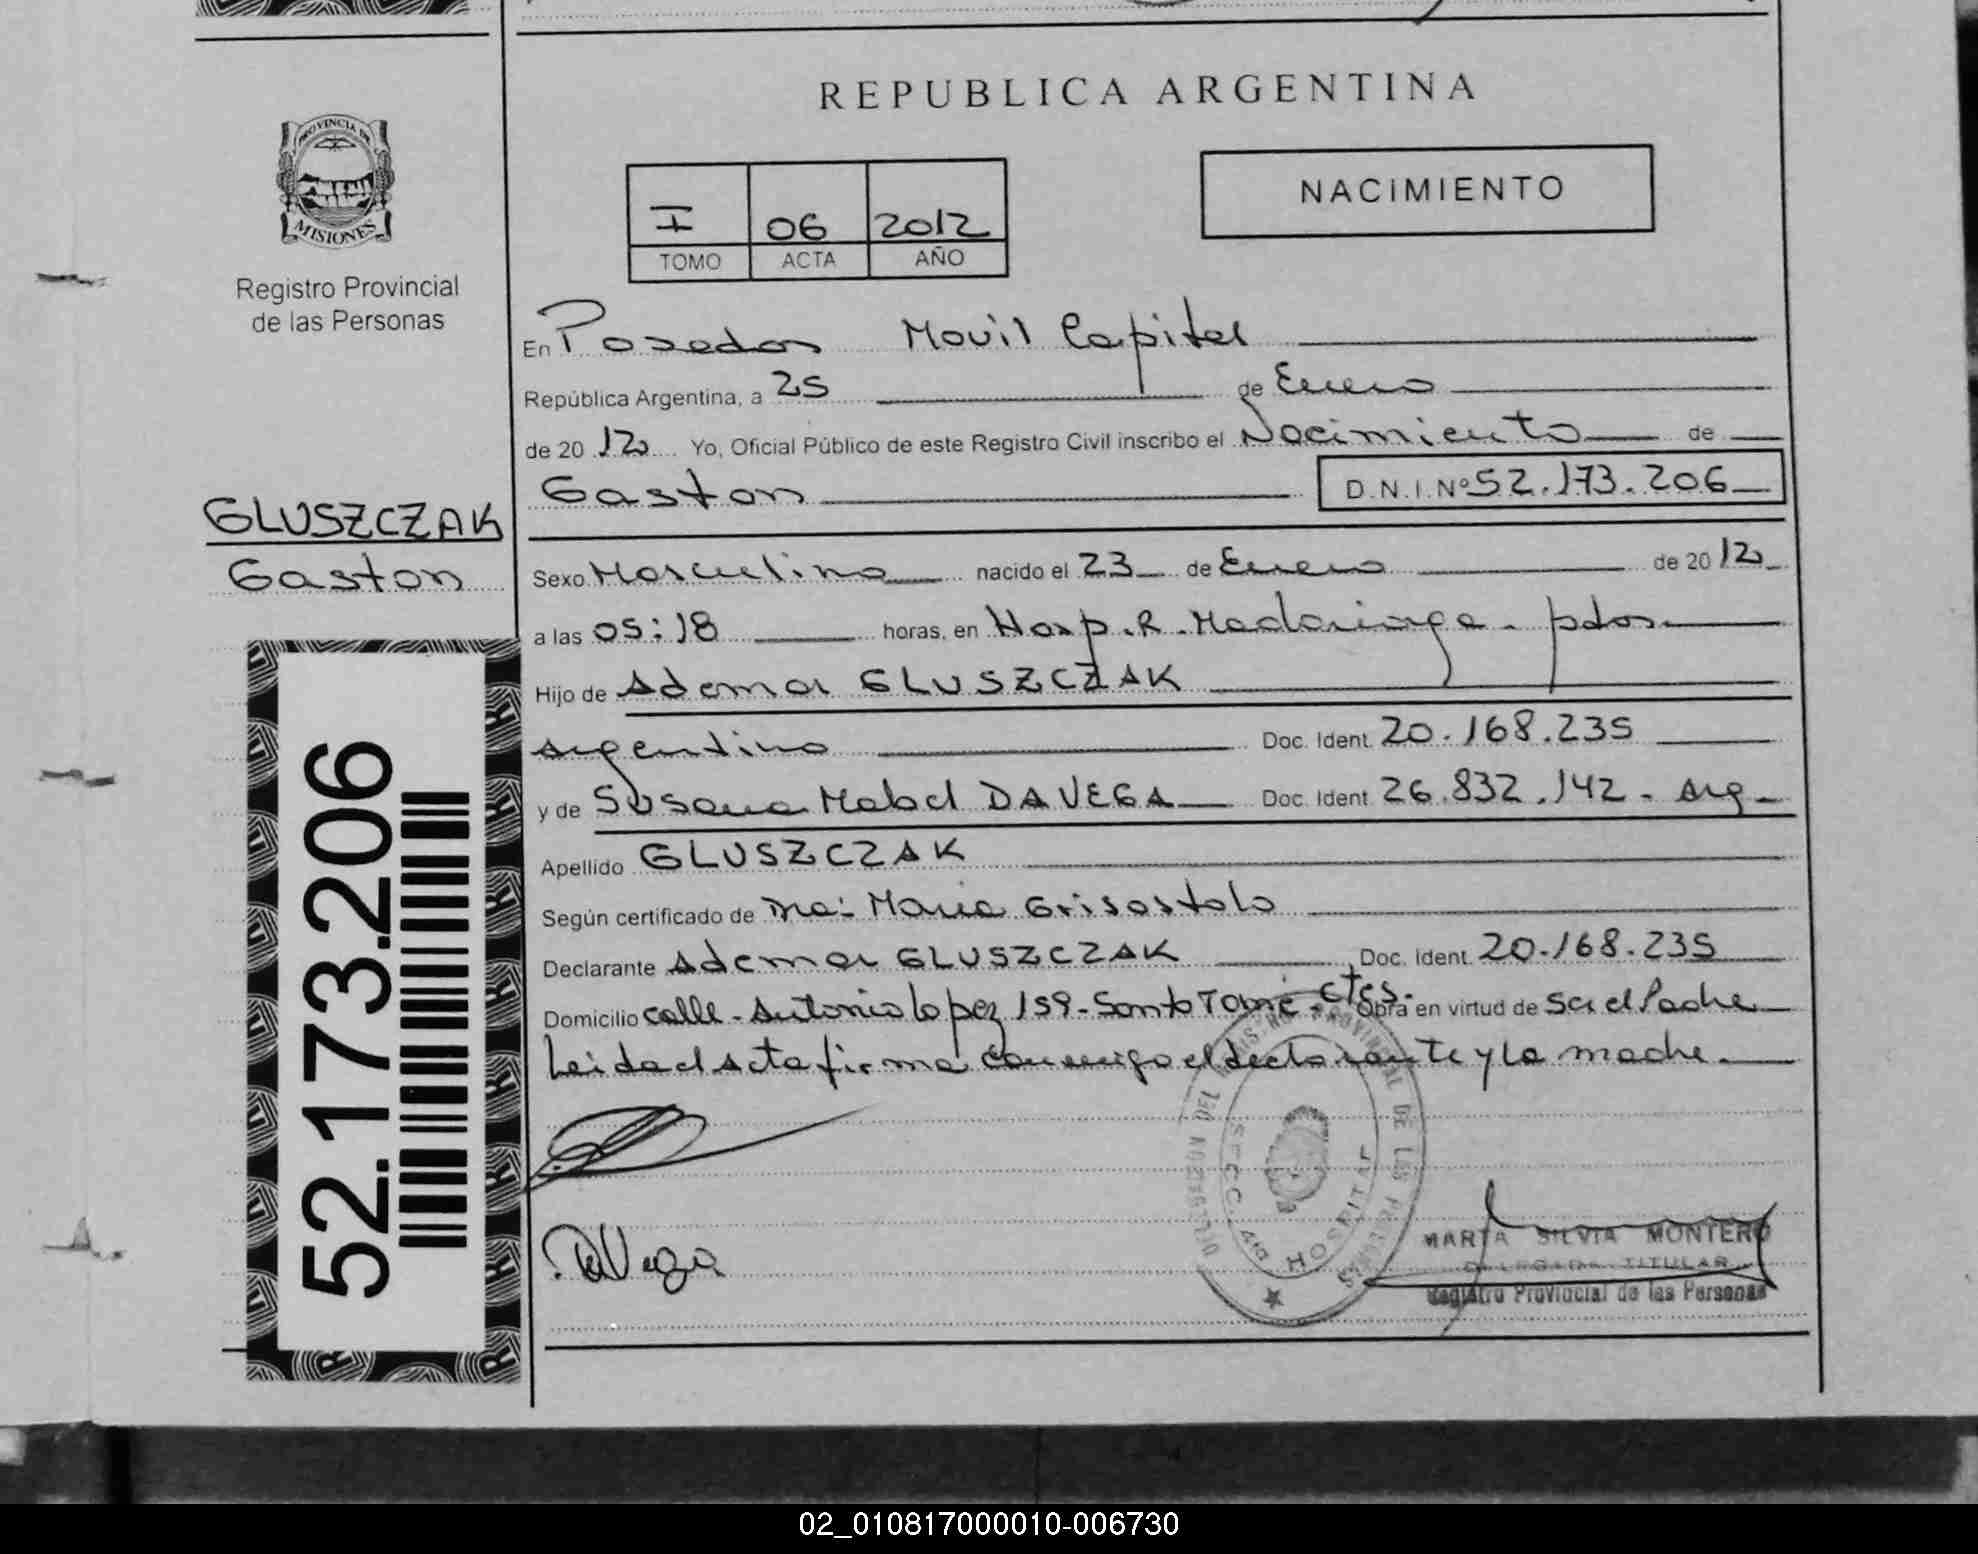 REPUBLICA ARGENTINA
PROVINCIA DE
MISIONES
Registro Provincial
de las Personas
I 06 2012
TOMO ACTA AÑO
NACIMIENTO
En Posadas Movil Capital
República Argentina, a 25 de Enero
de 2012 Yo, Oficial Público de este Registro Civil inscribo el Nacimiento de
Gaston D.N.I.Nº 52.173.206
GLUSZCZAK
Gaston
Sexo Masculino nacido el 23 de Enero de 2012
a las 05:18 horas, en Hosp. R. Madariaga - pdas
Hijo de Ademar GLUSZCZAK
argentino Doc. Ident. 20.168.235
y de Susana Mabel DA VEGA Doc. Ident. 26.832.142 - arg -
Apellido GLUSZCZAK
Según certificado de Dra: Maria Grisostolo
Declarante Ademar GLUSZCZAK Doc. Ident. 20.168.235
Domicilio calle - Antonio Lopez 159 - Santo Tomé - Ctes. Obra en virtud de ser el Padre
Leida el acta firma conmigo el declarante y la madre.
52.173.206
Da Vega
DEL REGISTRO PROVINCIAL DE LAS PERSONAS
SECC. 4ta HOSPITAL
MARTA SILVIA MONTERO
DELEGADA TITULAR
Registro Provincial de las Personas
02_010817000010-006730